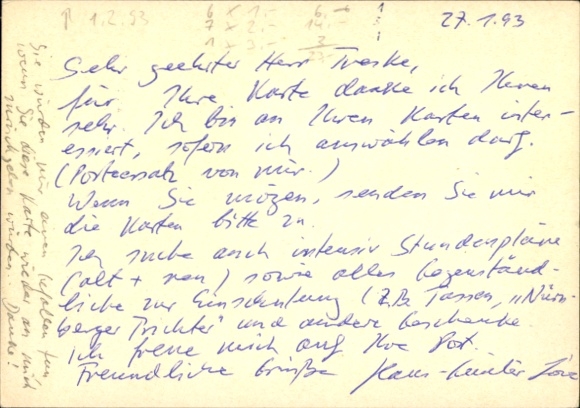 1.2.93
6 x 1,- 6,-
7 x 2,- 14,-
1 x 3,- 3
27.1.93
Sehr geehrter Herr Treske,
für Ihre Karte danke ich Ihnen
sehr. Ich bin an Ihren Karten inter-
essiert, sofern ich auswählen darf.
(Portoersatz von mir.)
Wenn Sie mögen, senden Sie mir
die Karten bitte zu.
Ich suche auch intensiv Stundenpläne
(alt + neu) sowie alles Gegenständ-
liche zur Einschulung (z.B. Tassen, "Nürn-
berger Trichter" und andere Geschenke.
Ich freue mich auf Ihre Post.
Freundliche Grüße Hans-Günter
Sie würden mir einen Gefallen tun,
wenn Sie diese Karte wieder an mich
zurückgeben würden. Danke!